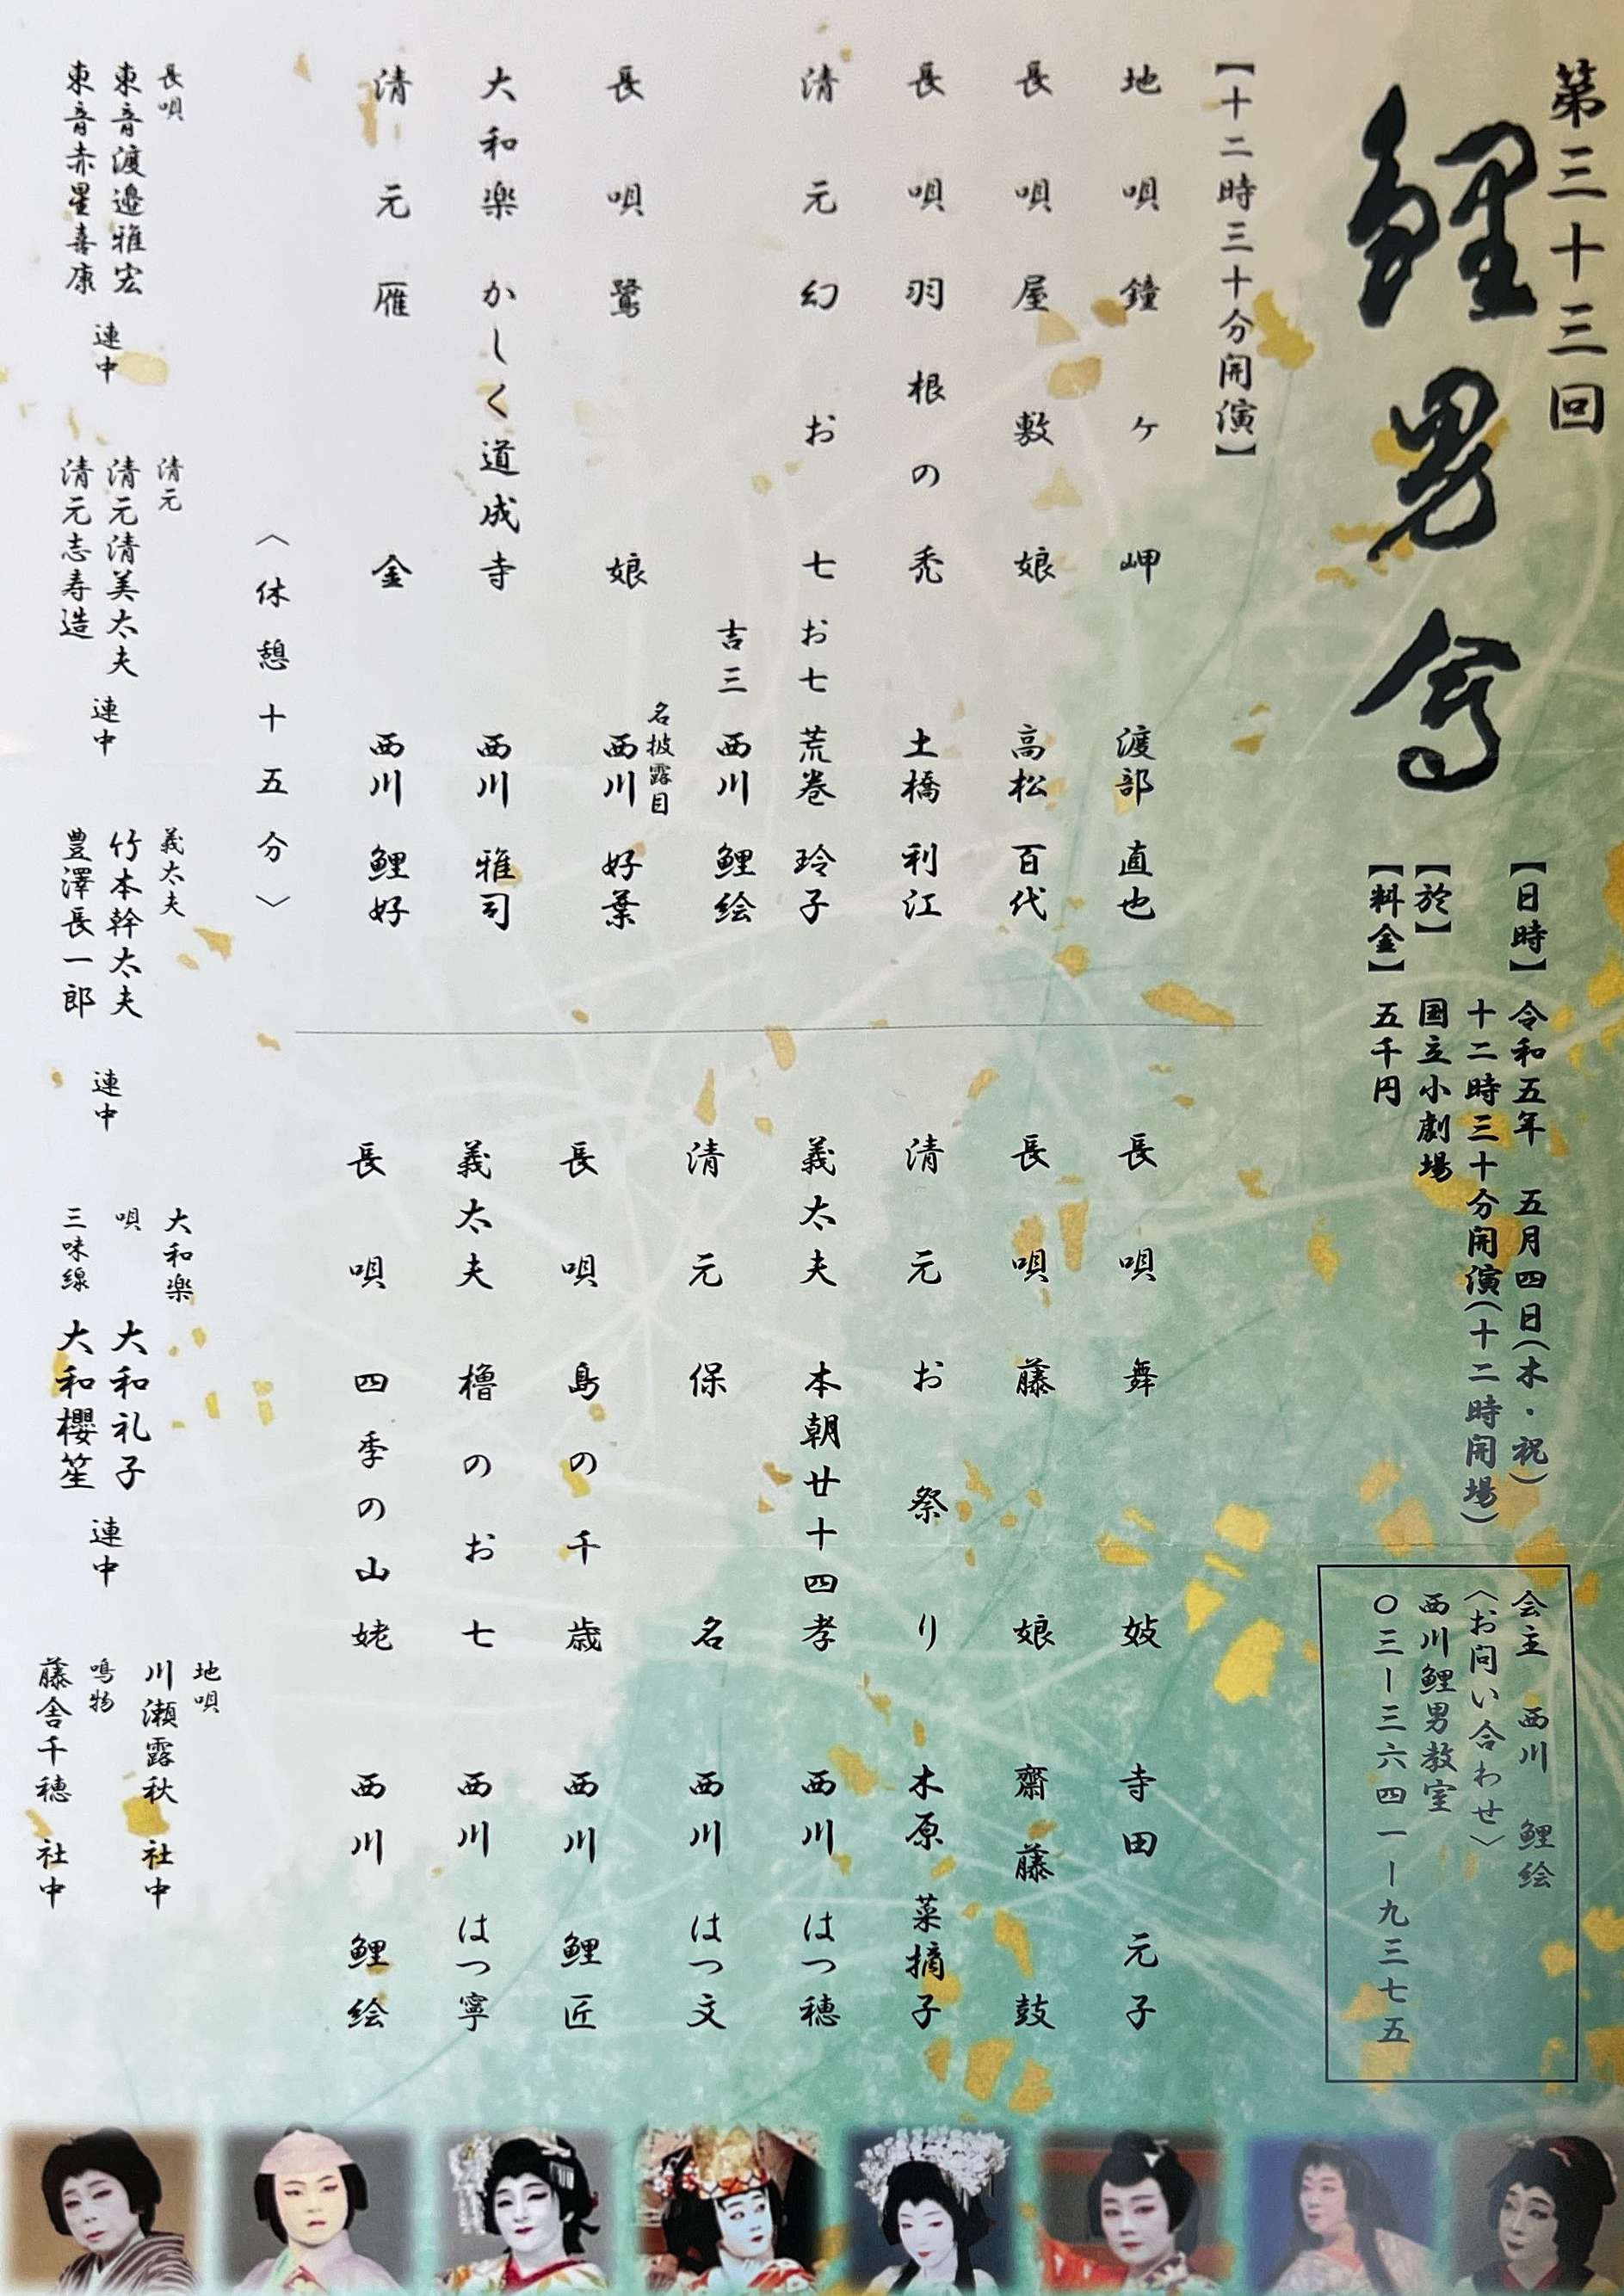 第三十三回
鯉男會
【日時】 令和五年 五月四日(木・祝)
十二時三十分開演(十二時開場)
【於】 国立小劇場
【料金】 五千円
会主 西川 鯉絵
〈お問い合わせ〉
西川鯉男教室
〇三ー三六四一ー九三七五
【十二時三十分開演】
地唄 鐘ヶ岬 渡部 直也
長唄 屋敷娘 高松 百代
長唄 羽根の禿 土橋 利江
清元 幻お七 お七 荒巻 玲子
吉三 西川 鯉絵
名披露目
長唄 鷺娘 西川 好葉
大和楽 かしく道成寺 西川 雅司
清元 雁金 西川 鯉好
〈休憩十五分〉
長唄 舞妓 寺田 元子
長唄 藤娘 齋藤 鼓
清元 お祭り 木原 菜摘子
義太夫 本朝廿十四孝 西川 はつ穂
清元 保名 西川 はつ文
長唄 島の千歳 西川 鯉匠
義太夫 櫓のお七 西川 はつ寧
長唄 四季の山姥 西川 鯉絵
長唄
東音渡邉雅宏
東音赤星喜康
連中
清元
清元清美太夫
清元志寿造
連中
義太夫
竹本幹太夫
豊澤長一郎
連中
大和楽
唄 大和礼子
三味線 大和櫻笙
連中
地唄
川瀬露秋 社中
鳴物
藤舎千穂 社中